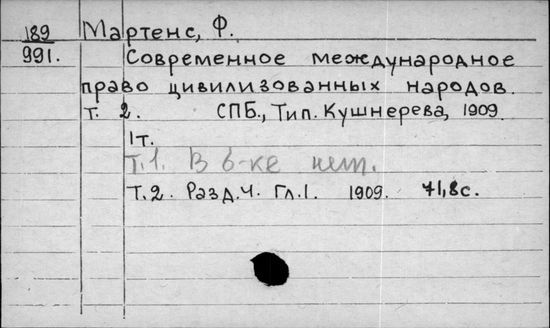 189 Мартенс, Ф.
991. Современное международное
право цивилизованных народов.
Т. 2. СПБ., Тип. Кушнерева, 1909
1т.
Т.1. В б-ке нет.
Т.2. Разд.Ч. Гл.I. 1909. 71,8с.